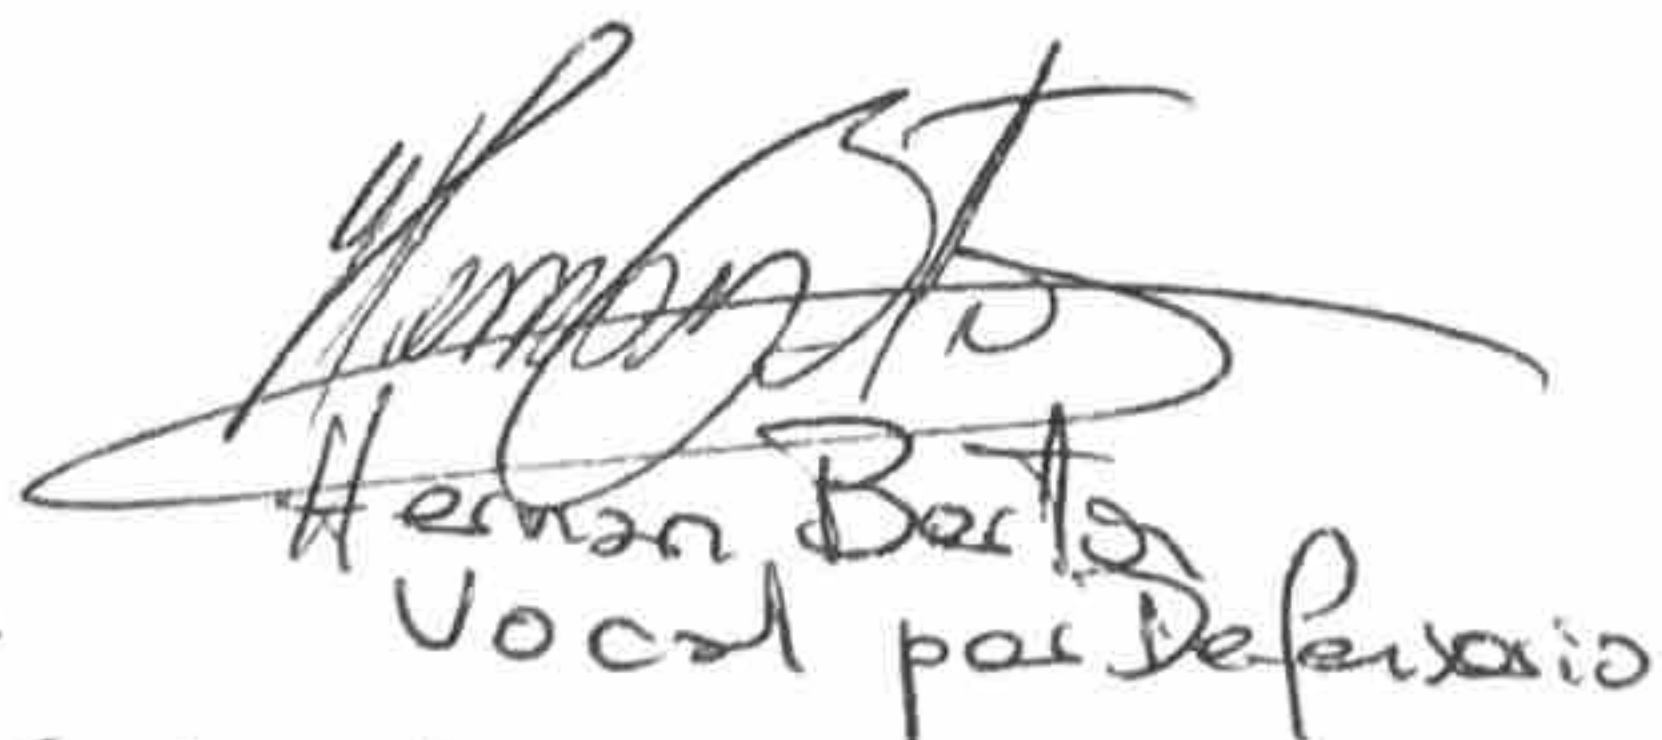 Hernan
Hernan Bartos
Vocal por Defensorio